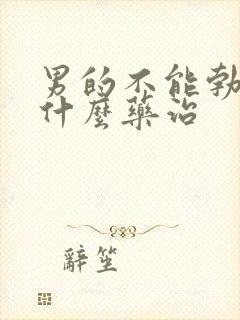 男的不能勃
什麼藥治
辭笙